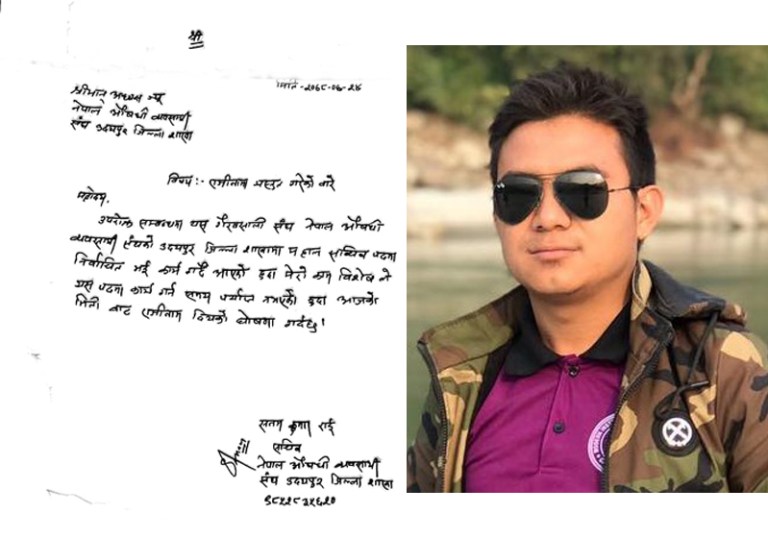 श्री
मिति -२०७८-०७-२४
श्रीमान अध्यक्ष ज्यू
नेपाल औषधी व्यवसायी
संघ उदयपुर जिल्ला शाखा
विषय :- राजीनामा प्रस्तुत गरेको बारे
महोदय,
उपरोक्त सम्बन्धमा यस गौरवशाली संघ नेपाल औषधी
व्यवसायी संघको उदयपुर जिल्ला शाखामा सचिव पदमा
निर्वाचित भई कार्य गर्दै आएको हुदा मेरो काम विशेषले
यस पदमा कार्य गर्न समय पर्याप्त नभएको हुदा आजको
मिति बाट राजीनामा दिएको घोषणा गर्दछु।
कुमार राई
सचिव
नेपाल औषधी व्यवसायी
संघ उदयपुर जिल्ला शाखा